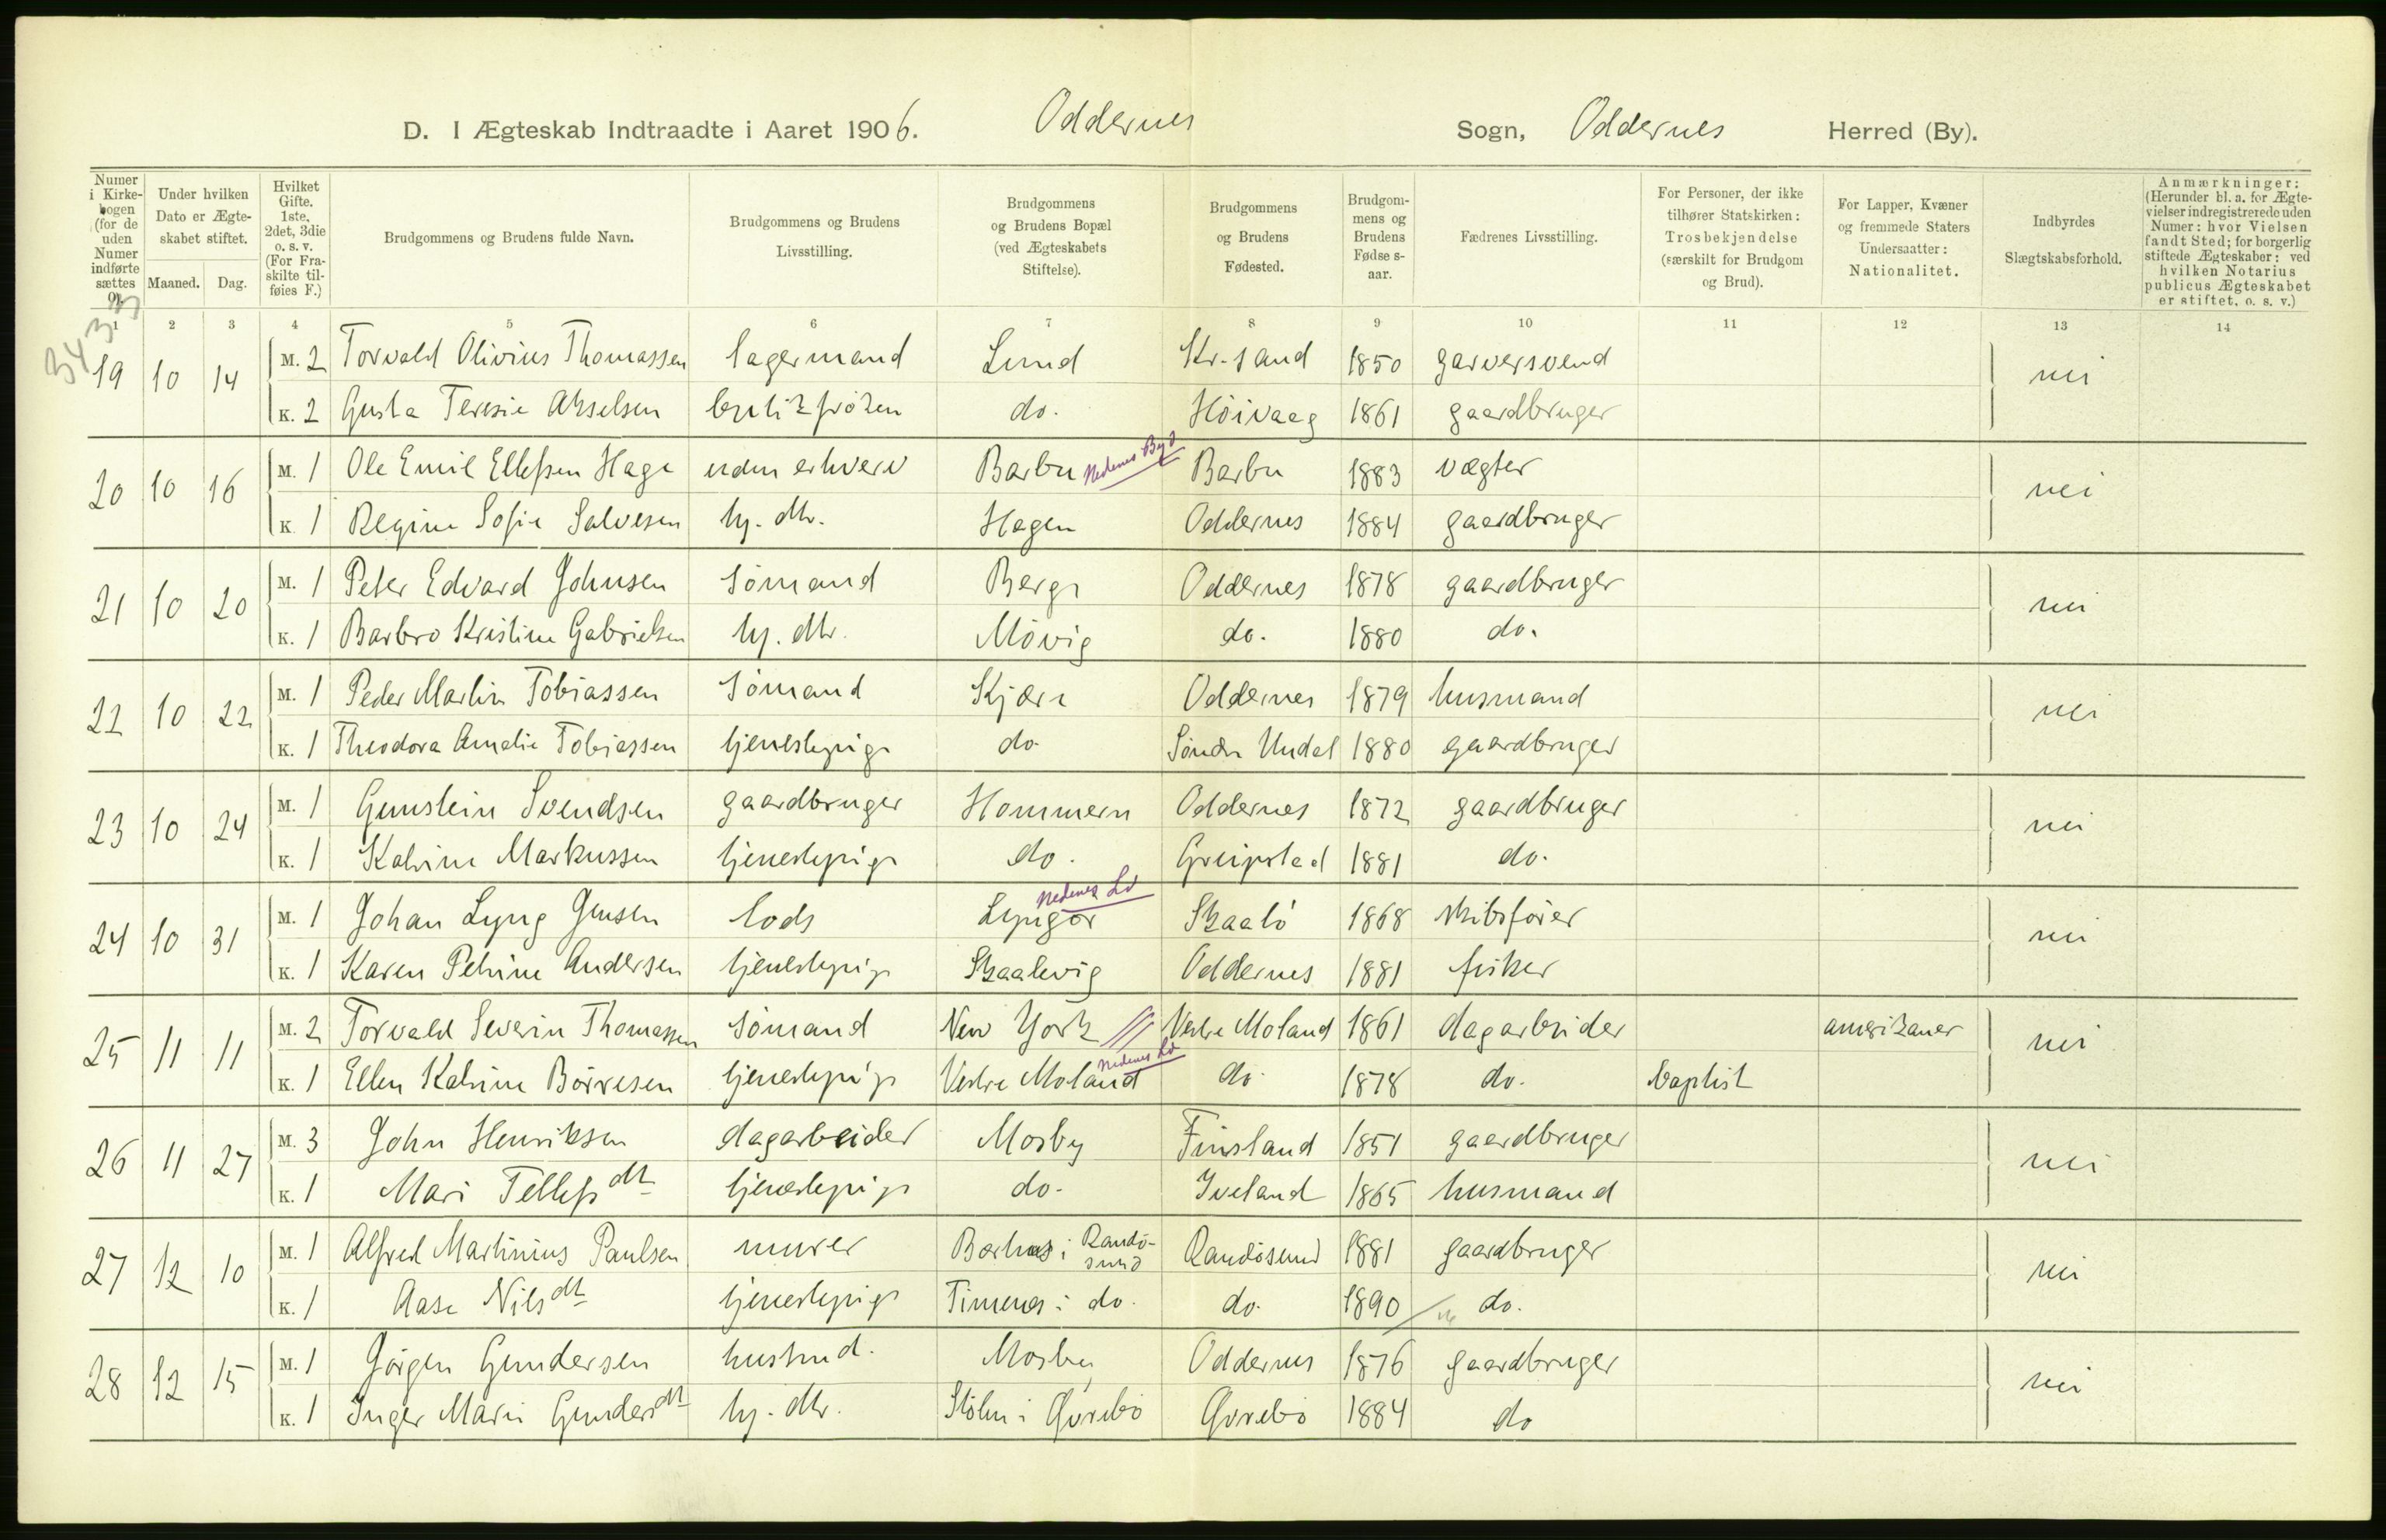 D. I Ægteskab Indtraadte i Aaret 1906. Oddernes Sogn, Oddernes Herred (By).
Numer i Kirke-bogen (for de uden Numer indførte sættes 0).
Under hvilken Dato er Ægte-skabet stiftet.
Maaned. Dag.
Hvilket Gifte. 1ste, 2det, 3die o. s. v. (For Fra-skilte til-føies F.)
Brudgommens og Brudens fulde Navn.
Brudgommens og Brudens Livsstilling.
Brudgommens og Brudens Bopæl (ved Ægteskabets Stiftelse).
Brudgommens og Brudens Fødested.
Brudgom-mens og Brudens Fødse s-aar.
Fædrenes Livsstilling.
For Personer, der ikke tilhører Statskirken: Trosbekjendelse (særskilt for Brudgom og Brud).
For Lapper, Kvæner og fremmede Staters Undersaatter: Nationalitet.
Indbyrdes Slægtskabsforhold.
Anmærkninger: (Herunder bl. a. for Ægte-vielser indregistrerede uden Numer: hvor Vielsen fandt Sted; for borgerlig stiftede Ægteskaber: ved hvilken Notarius publicus Ægteskabet er stiftet, o. s. v.)
1 2 3 4 5 6 7 8 9 10 11 12 13 14
19 10 14 M. 2 Torvald Olivius Thomassen lagermand Lund Kr.sand 1850 garversvend nei
K. 2 Gusta Teresie Akselsen butikfröken do. Höivaag 1861 gaardbruger
20 10 16 M. 1 Ole Emil Ellefsen Hage uden erhverv Barbu Nedenes Barbu 1883 vægter nei
K. 1 Regine Sofie Salvesen hj. dtr. Hagen Oddernes 1884 gaardbruger
21 10 20 M. 1 Peter Edvard Johnsen sömand Berge Oddernes 1878 gaardbruger nei
K. 1 Barbro Kristine Gabrielsen hj. dtr. Mövig do. 1880 do.
22 10 22 M. 1 Peder Martin Tobiassen sömand Kjære Oddernes 1879 husmand nei
K. 1 Theodora Amalie Tobiassen tjenestepige do. Söndre Undal 1880 gaardbruger
23 10 24 M. 1 Gunstein Svendsen gaardbruger Hommern Oddernes 1872 gaardbruger nei
K. 1 Katrine Markussen tjenestepige do. Greipstad 1881 do.
24 10 31 M. 1 Johan Lyng Jensen lods Lyngör Nedenes Skaatö 1868 skibsförer nei
K. 1 Karen Petrine Andersen tjenestepige Skaalevig Oddernes 1881 fisker
25 11 11 M. 2 Torvald Severin Thomassen sömand New York Vestre Moland 1861 dagarbeider amerikaner nei
K. 1 Ellen Katrine Börresen tjenestepige Vestre Moland Nedenes do. 1878 do. baptist
26 11 27 M. 3 John Henriksen dagarbeider Mosby Finsland 1851 gaardbruger nei
K. 1 Mari Tellefsdtr tjenestepige do. Iveland 1865 husmand
27 12 10 M. 1 Alfred Martinius Paulsen murer i Randösund Randösund 1881 gaardbruger nei
K. 1 Aase Nilsdtr tjenestepige Timenes i do. do. 1890 do.
28 12 15 M. 1 Jörgen Gundersen Mosby Oddernes 1876 gaardbruger nei
K. 1 Inger Marie Gundersdtr hj. dtr. Stölen i Øvrebö Øvrebö 1884 do